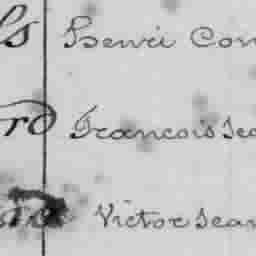 ls Henri Con
rd Francois Jea
Victor Jean